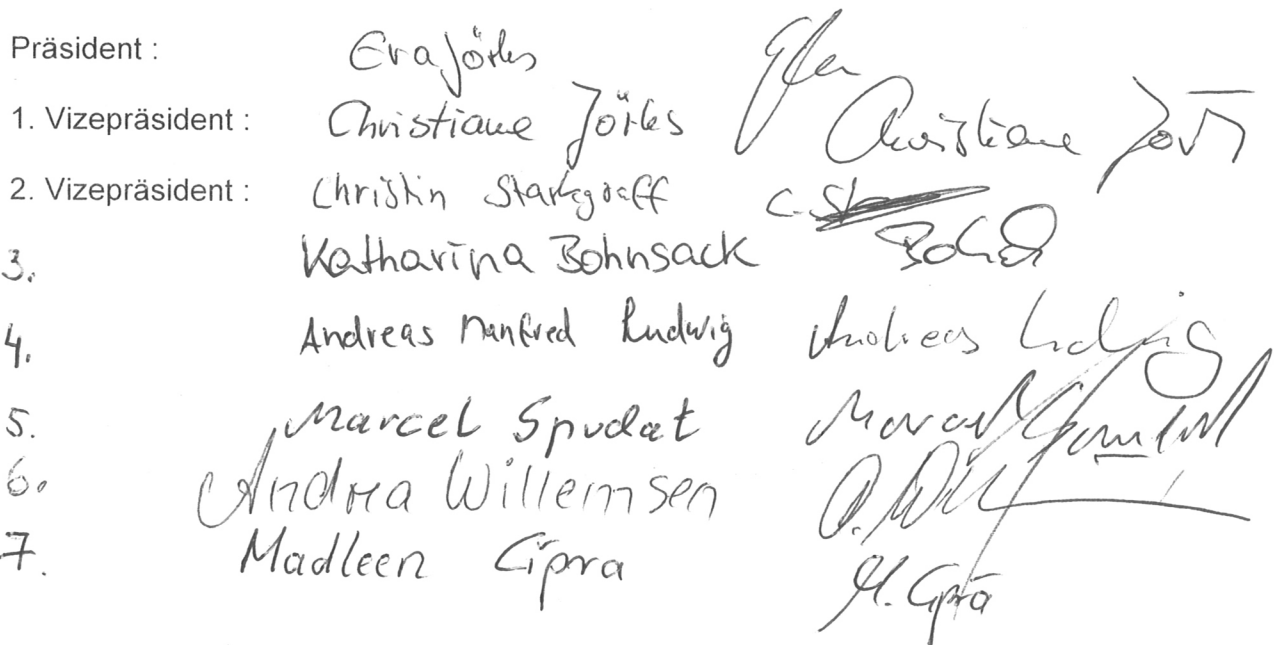 Präsident : Eva Jörks
1. Vizepräsident : Christiane Jörks Christiane
2. Vizepräsident : Christin C. St
3. Katharina Bohnsack
4. Andreas Manfred Ludwig Andreas Ludwig
5. Marcel Spudat Marcel
6. Andrea Willemsen A. Will
7. Madleen Cipra M. Cipra